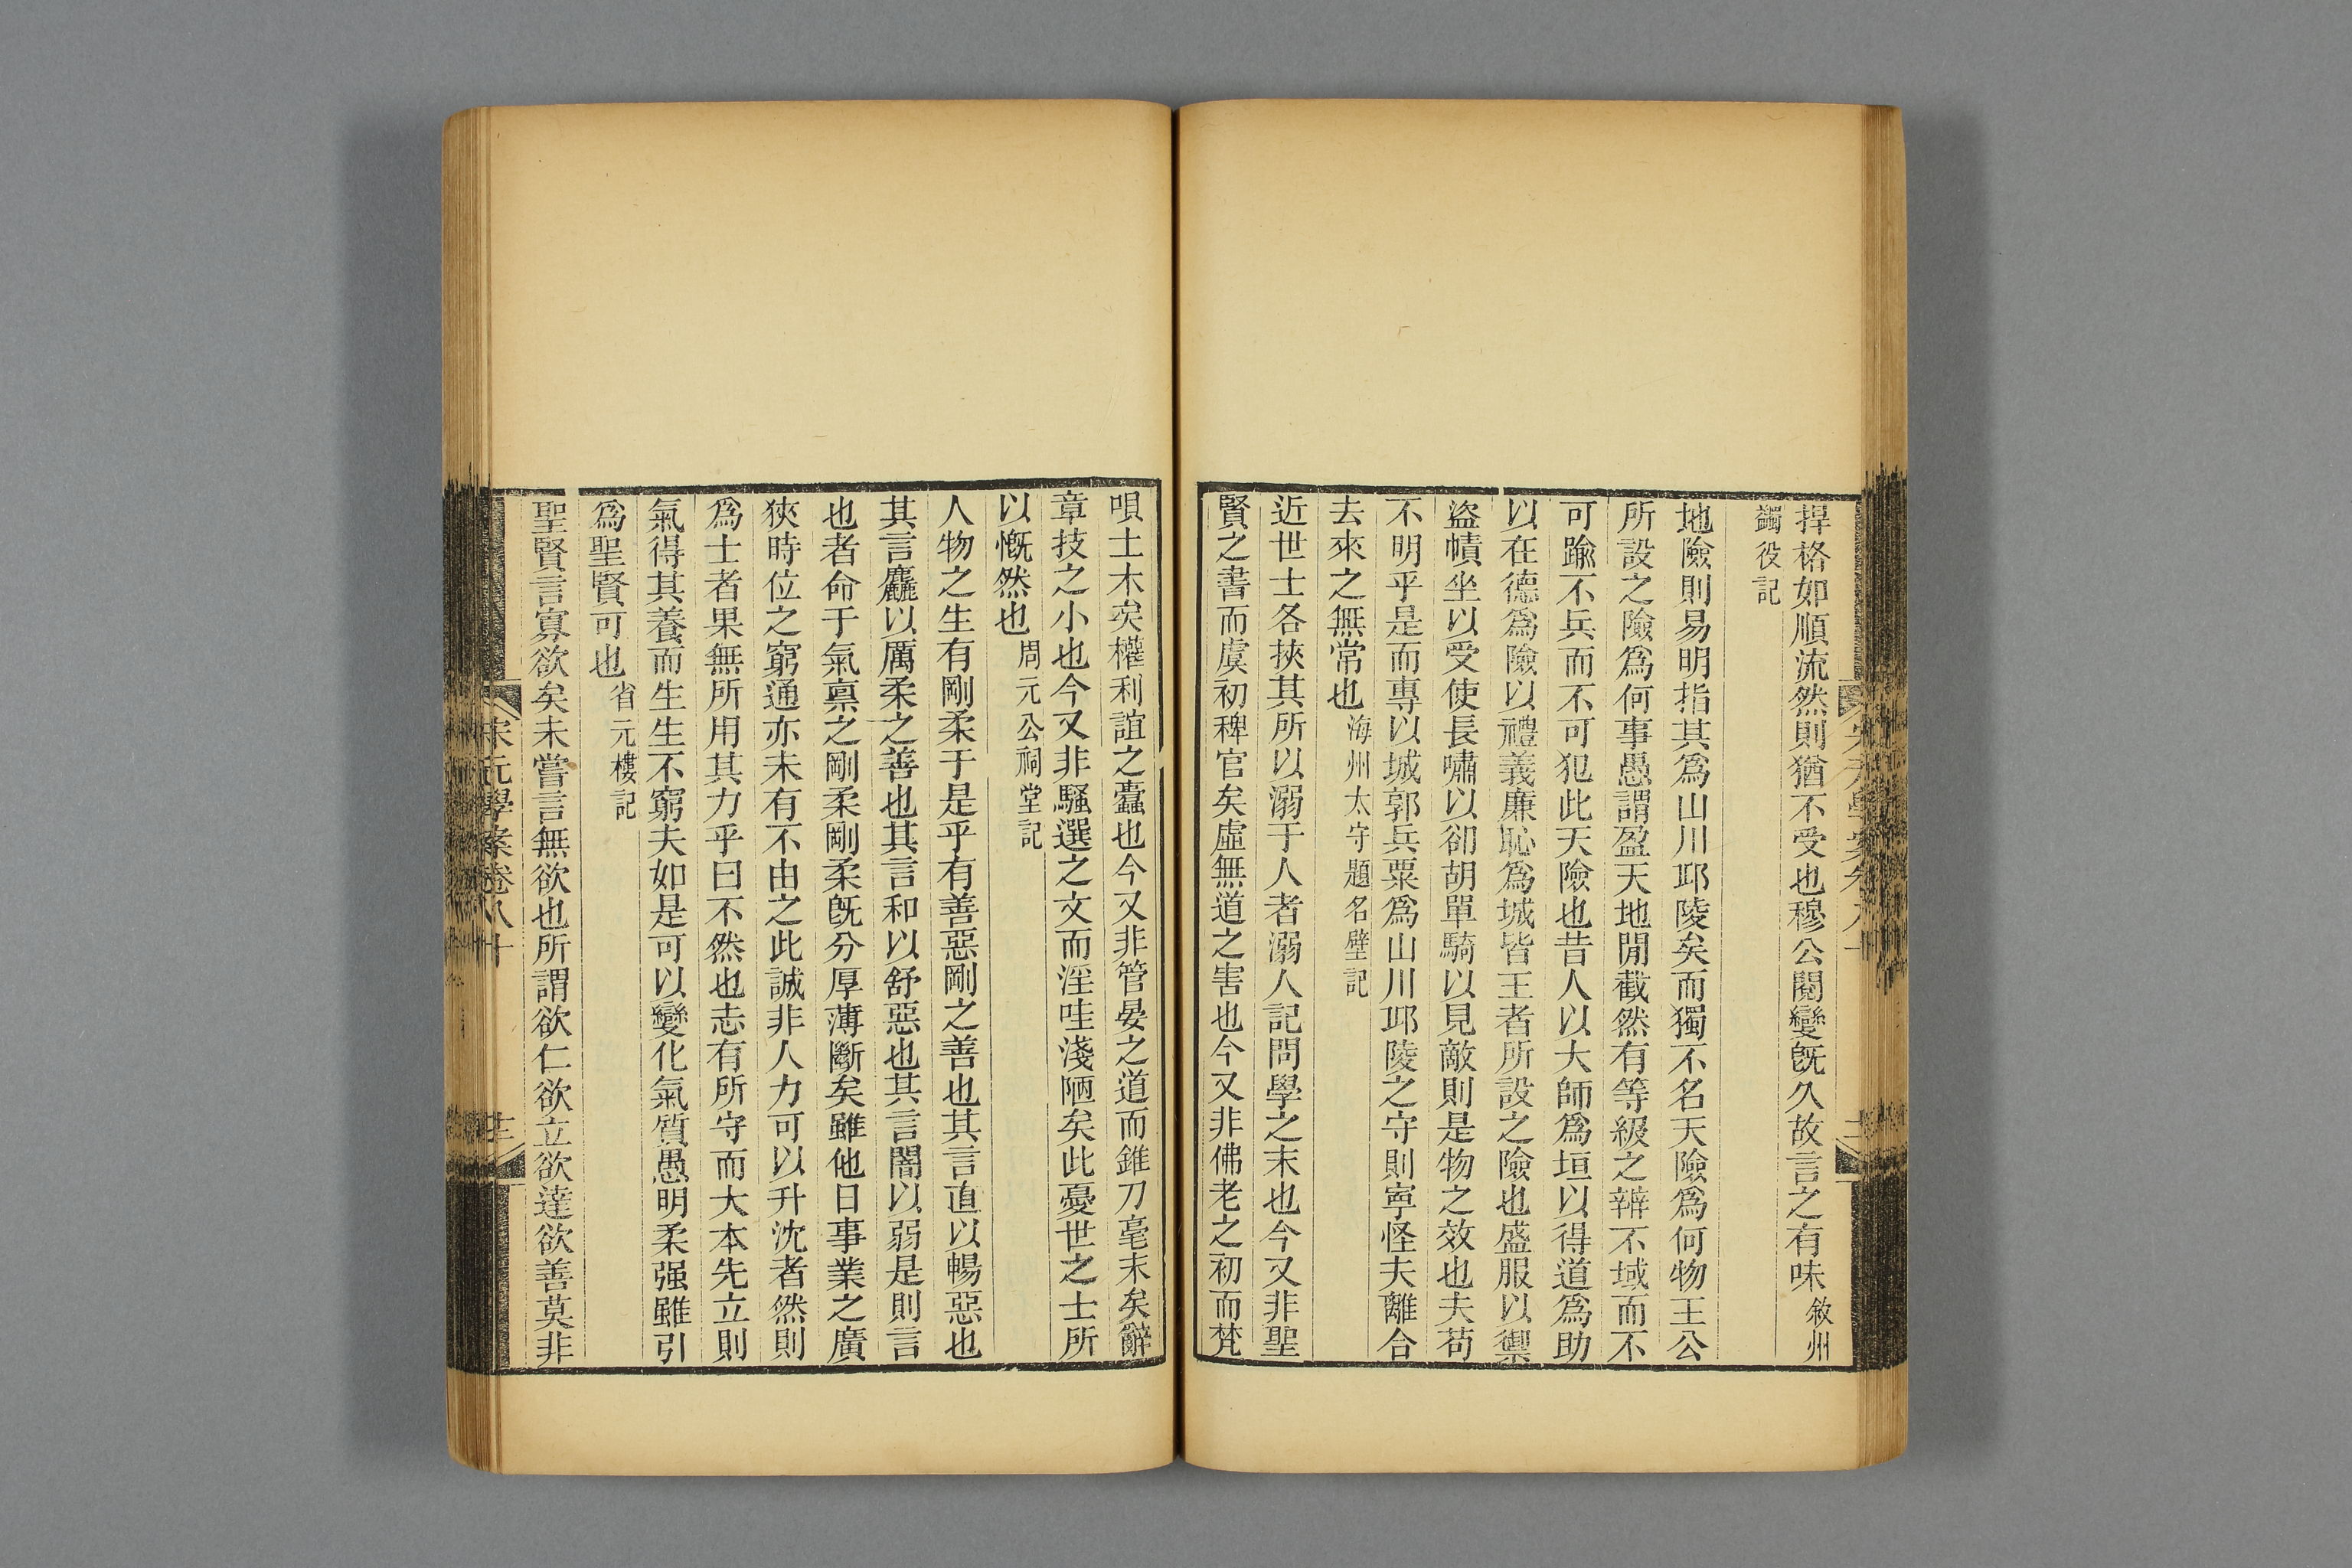 捍格如順流然則猶不受也穆公閱變旣久故言之有味敘州
蠲役記
地險則易明指其爲山川邱陵矣而獨不名天險爲何物王公
所設之險爲何事愚謂盈天地閒截然有等級之辨不域而不
可踰不兵而不可犯此天險也昔人以大師爲垣以得道爲助
以在德爲險以禮義廉恥爲城皆王者所設之險也盛服以禦
盜幘坐以受使長嘯以卻胡單騎以見敵則是物之效也夫苟
不明乎是而專以城郭兵粟爲山川邱陵之守則寧怪夫離合
去來之無常也海州太守題名壁記
近世士各挾其所以溺于人者溺人記問學之末也今又非聖
賢之書而虞初稗官矣虛無道之害也今又非佛老之初而梵
唄土木矣權利誼之蠹也今又非管晏之道而錐刀毫末矣辭
章技之小也今又非騷選之文而淫哇淺陋矣此憂世之士所
以慨然也周元公祠堂記
人物之生有剛柔于是乎有善惡剛之善也其言直以暢惡也
其言麤以厲柔之善也其言和以舒惡也其言闇以弱是則言
也者命于氣禀之剛柔剛柔旣分厚薄斷矣雖他日事業之廣
狹時位之窮通亦未有不由之此誠非人力可以升沈者然則
爲士者果無所用其力乎曰不然也志有所守而大本先立則
氣得其養而生生不窮夫如是可以變化氣質愚明柔强雖引
爲聖賢可也省元樓記
聖賢言寡欲矣未嘗言無欲也所謂欲仁欲立欲達欲善莫非
宋元學案卷八十